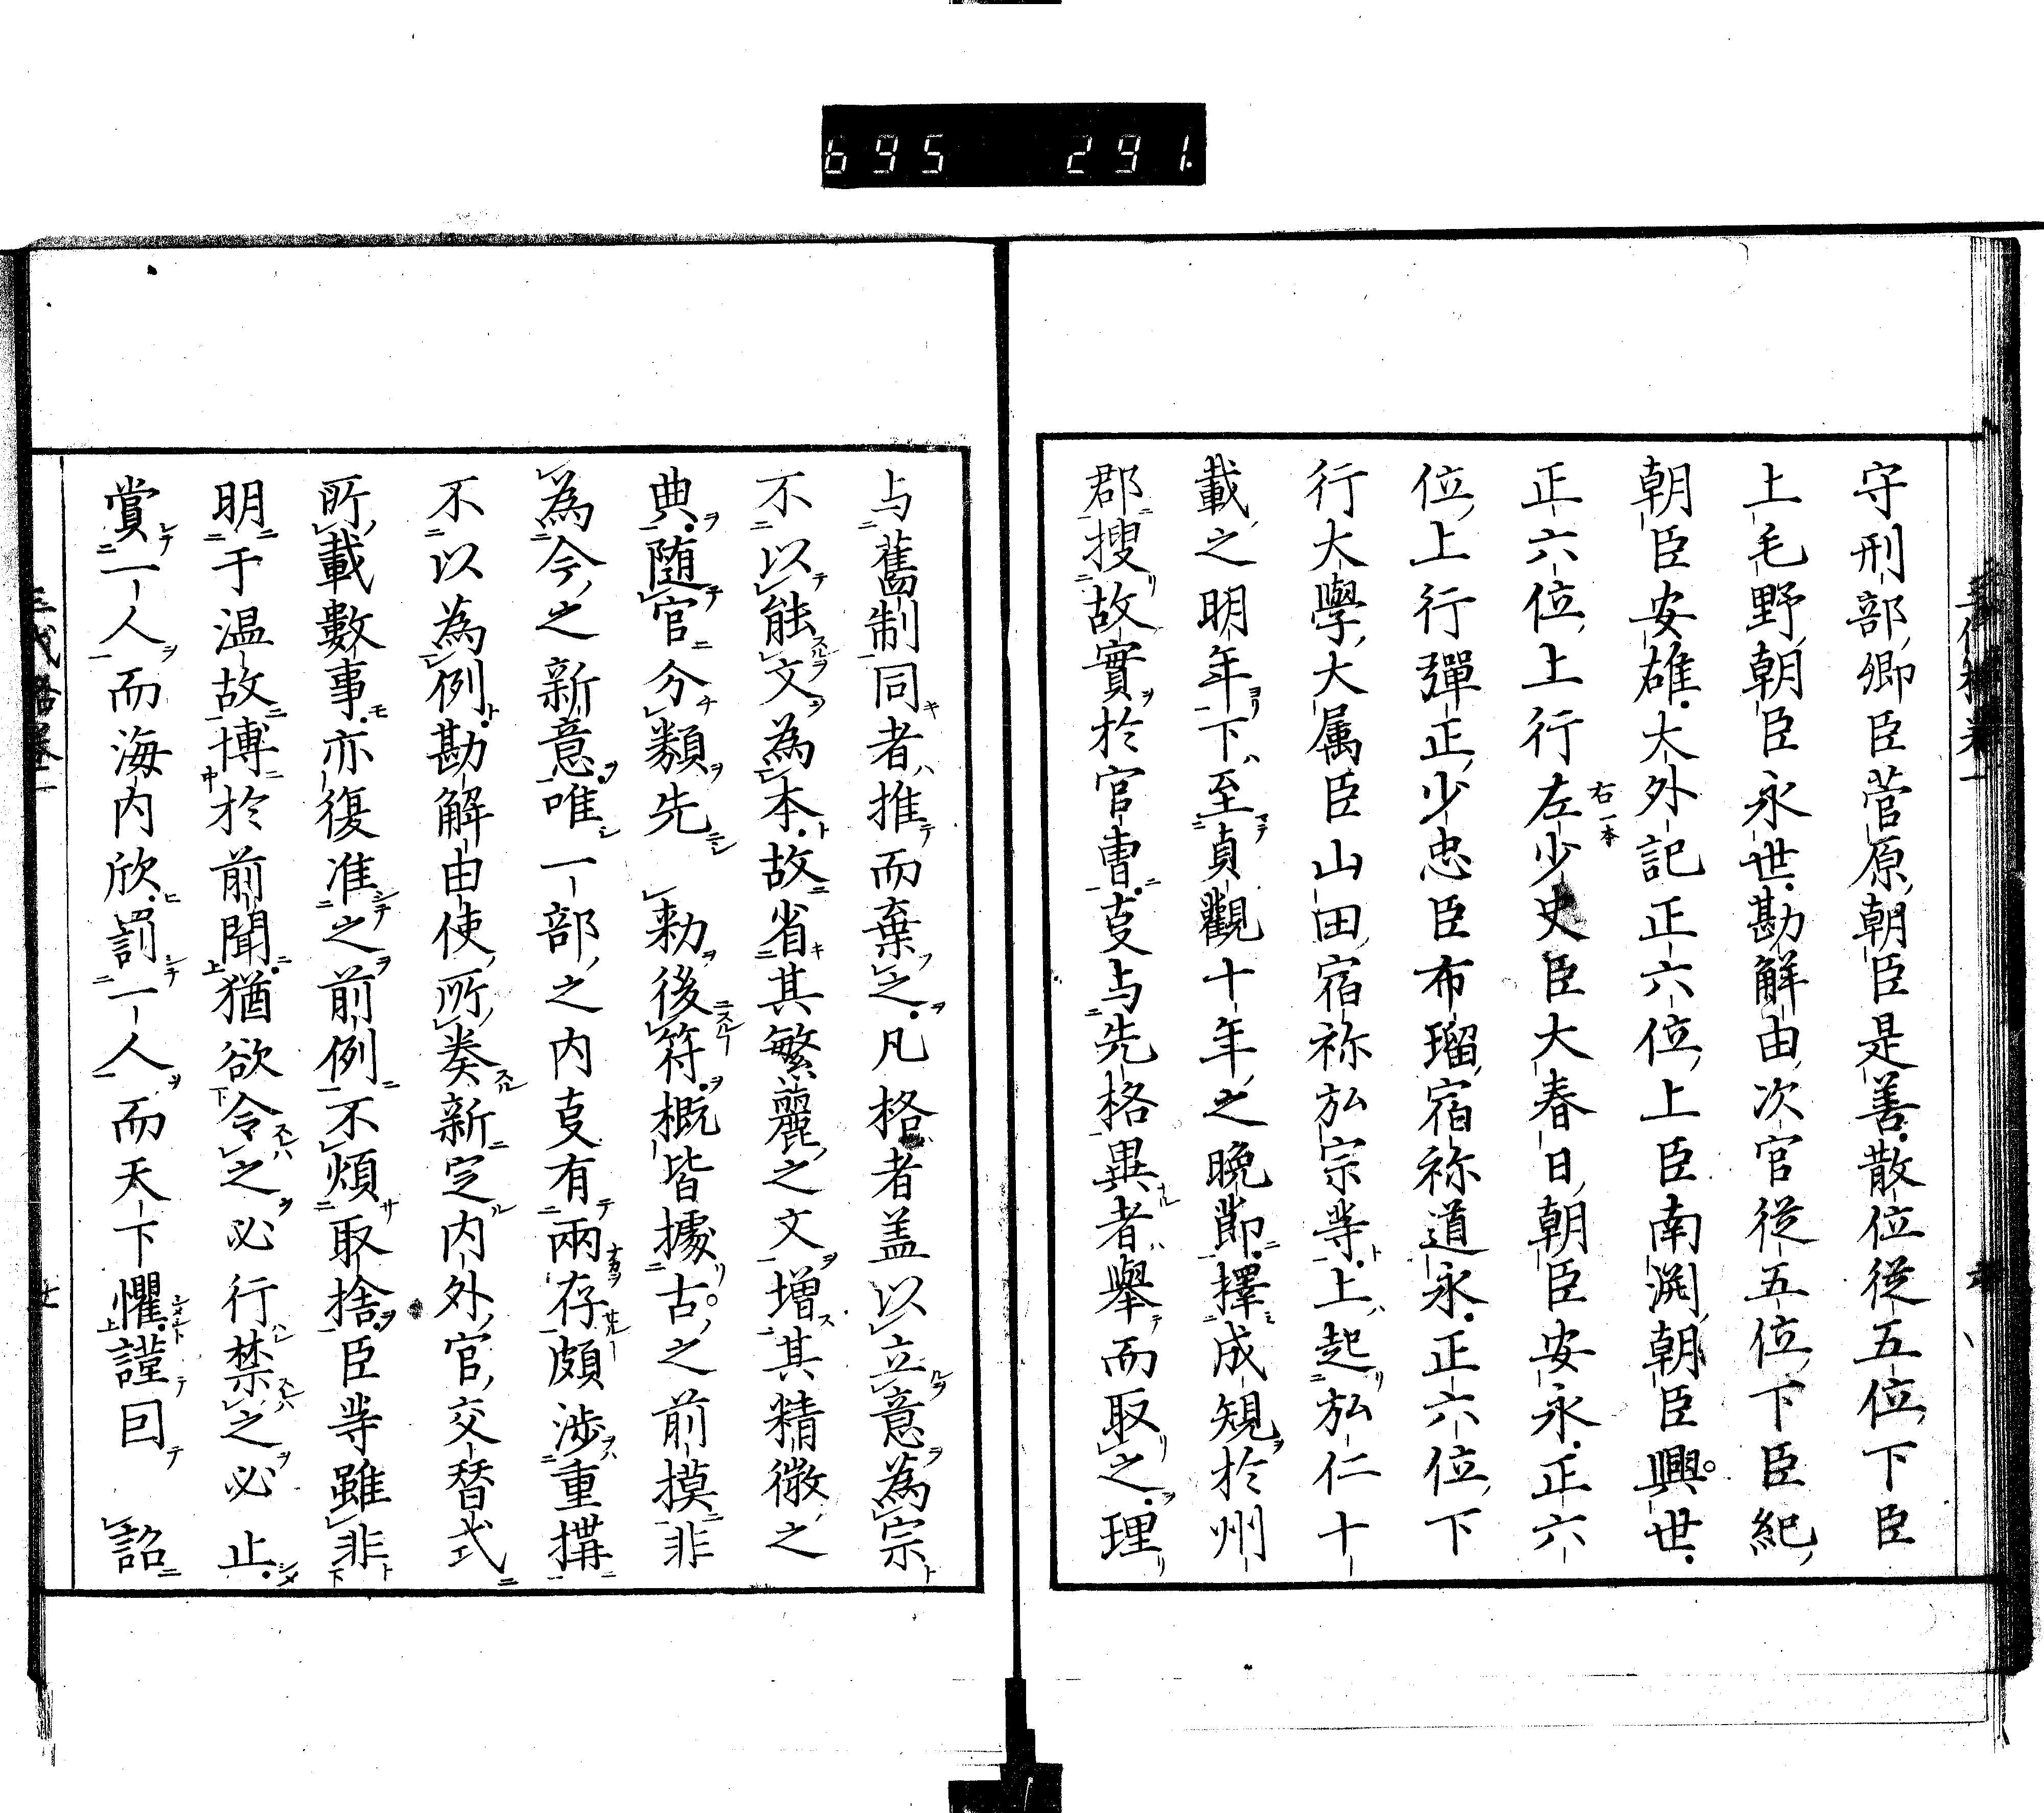 695 291
守刑部卿臣菅原朝臣是善散位從五位下臣
上毛野朝臣永世勘解由次官從五位下臣紀
朝臣安雄大外記正六位上臣南渕朝臣興世
正六位上行左少史臣大春日朝臣安永正六
右一本
位上行彈正少忠臣布瑠宿祢道永正六位下
行大學大属臣山田宿祢弘宗等上起弘仁十
載之明年下至貞觀十年之晩節擇成規於州
郡搜故實於官曹叓与先格異者擧而取之理
与舊制同者推而棄之凡格者盖以立意為宗
不以能文為本故省其繁麗之文增其精微之
典随官分類先 勅後符概皆據古之前摸非
為今之新意唯一部之内叓有兩存頗渉重搆
不以為例勘解由使所奏新定内外官交替式
所載數事亦復准之前例不煩取捨臣等雖非
明于温故博於前聞猶欲令之必行禁之必止
賞一人而海内欣罰一人而天下懼謹囙 詔